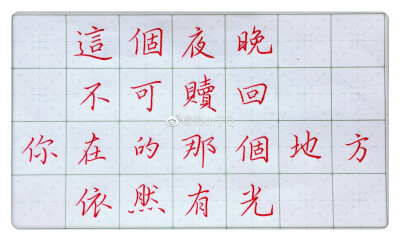 這個夜晚
不可贖回
你在的那個地方
依然有光